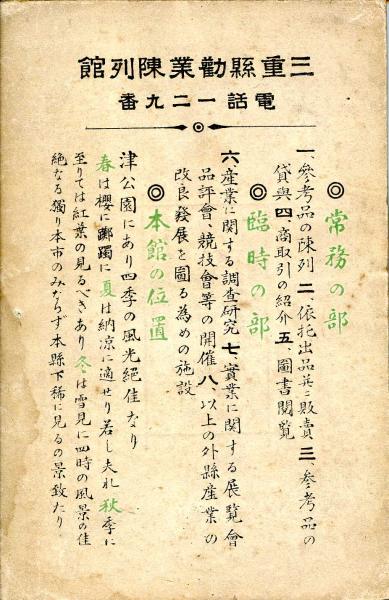 三重縣勸業陳列館
電話一二九番
◎常務の部
一、參考品の陳列 二、依托出品並ニ販賣 三、參考品の
貸與 四、商取引の紹介 五、圖書閲覧
◎臨時の部
六、産業に関する調査研究 七、實業に関する展覧會
品評會、競技會等の開催 八、以上の外縣産業の
改良發展を圖る為めの施設
◎本館の位置
津公園にあり四季の風光絶佳なり
春は櫻に躑躅に夏は納凉に適せり若し夫れ秋季に
至りては紅葉の見るべきあり冬は雪見に四時の風景の佳
絶なる獨り本市のみならず本縣下稀に見るの景致たり